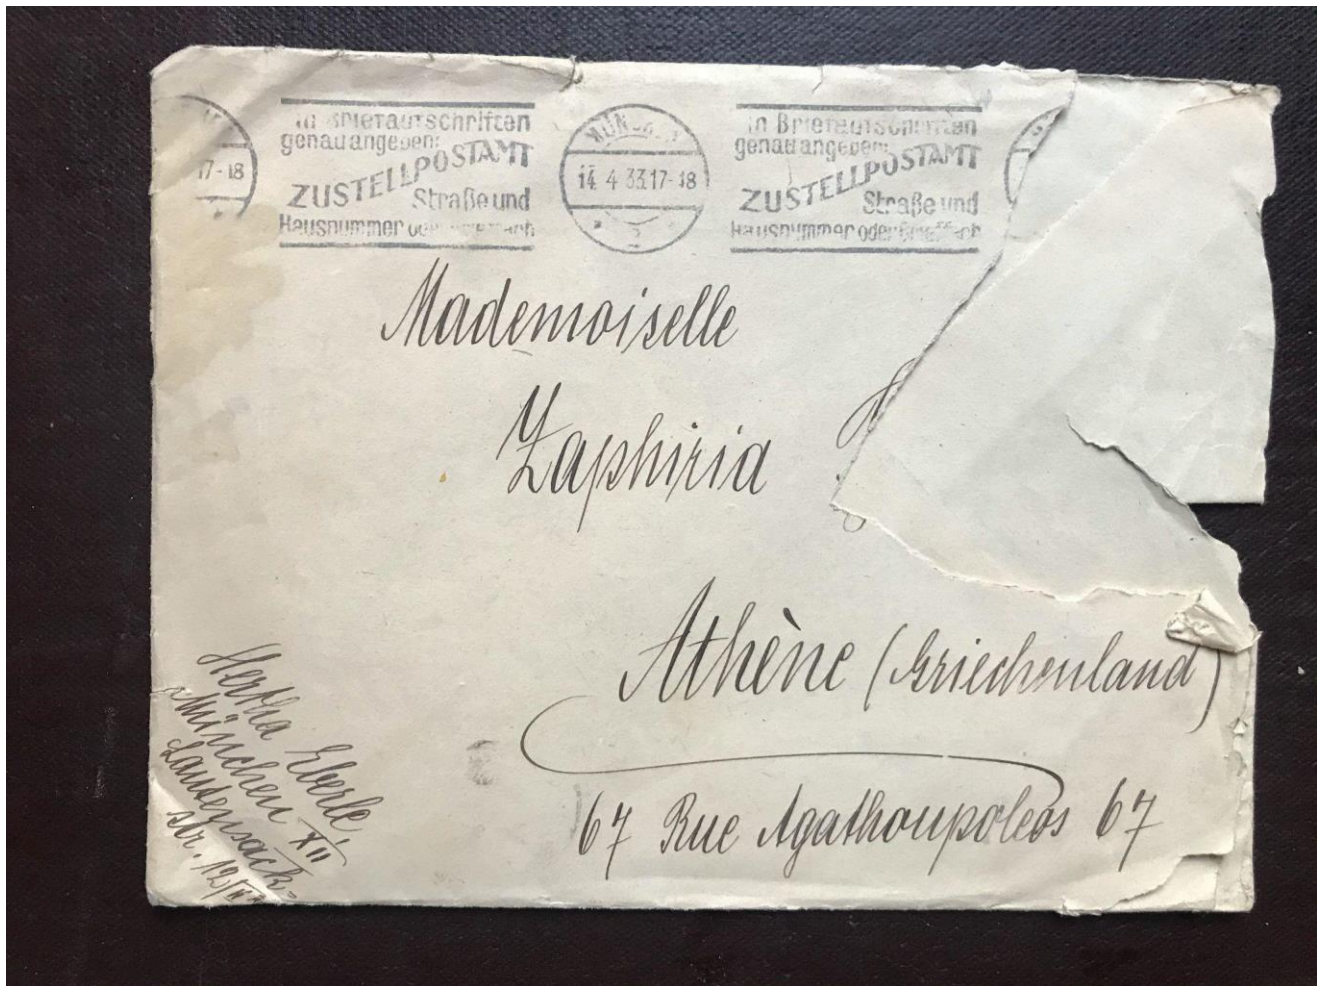 17-18
in Briefaufschriften
genau angeben:
ZUSTELLPOSTAMT
Straße und
Hausnummer oder
MÜNCHEN
14 4 33 17-18
2
in Briefaufschriften
genau angeben:
ZUSTELLPOSTAMT
Straße und
Hausnummer oder Brieffach
Mademoiselle
Zaphiria
Athène (Griechenland)
67 Rue Agathoupoleos 67
Hertha Eberle,
München XII
str. 12/